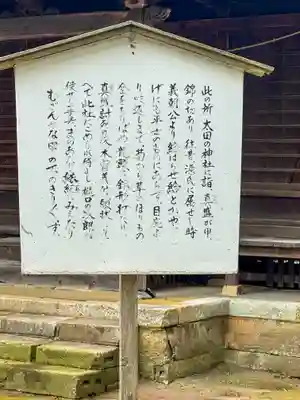 此の所 太田の神社に詣 真盛が甲
錦の切あり 往昔 源氏に属せし時
義朝公より給はらせ給とかや
げにも平士のものにあらず 目庇よ
り吹返しまで 菊から草のほりもの
金をちりばめ 龍頭に鍬形打たり
真盛討死の後 木曽義仲 願状にそ
へて此社にこめられ侍よし 樋口の次郎が
使せし事共 まのあたり縁起にみえたり
むざんやな甲の下のきりぎりす